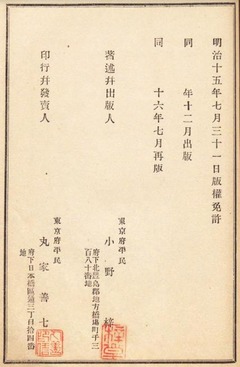 明治十五年七月三十一日版權免許
同　　年十二月出版
同　　十六年七月再版
著述幷出版人
東京府平民
小野梓
府下北豊島郡地方橋場町千三
百八十番地
印行幷發賣人
東京府平民
丸家善七
府下日本橋區通三丁目拾四番
地